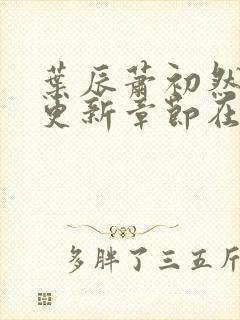 葉辰蕭初然
更新章節在
多胖了三五斤